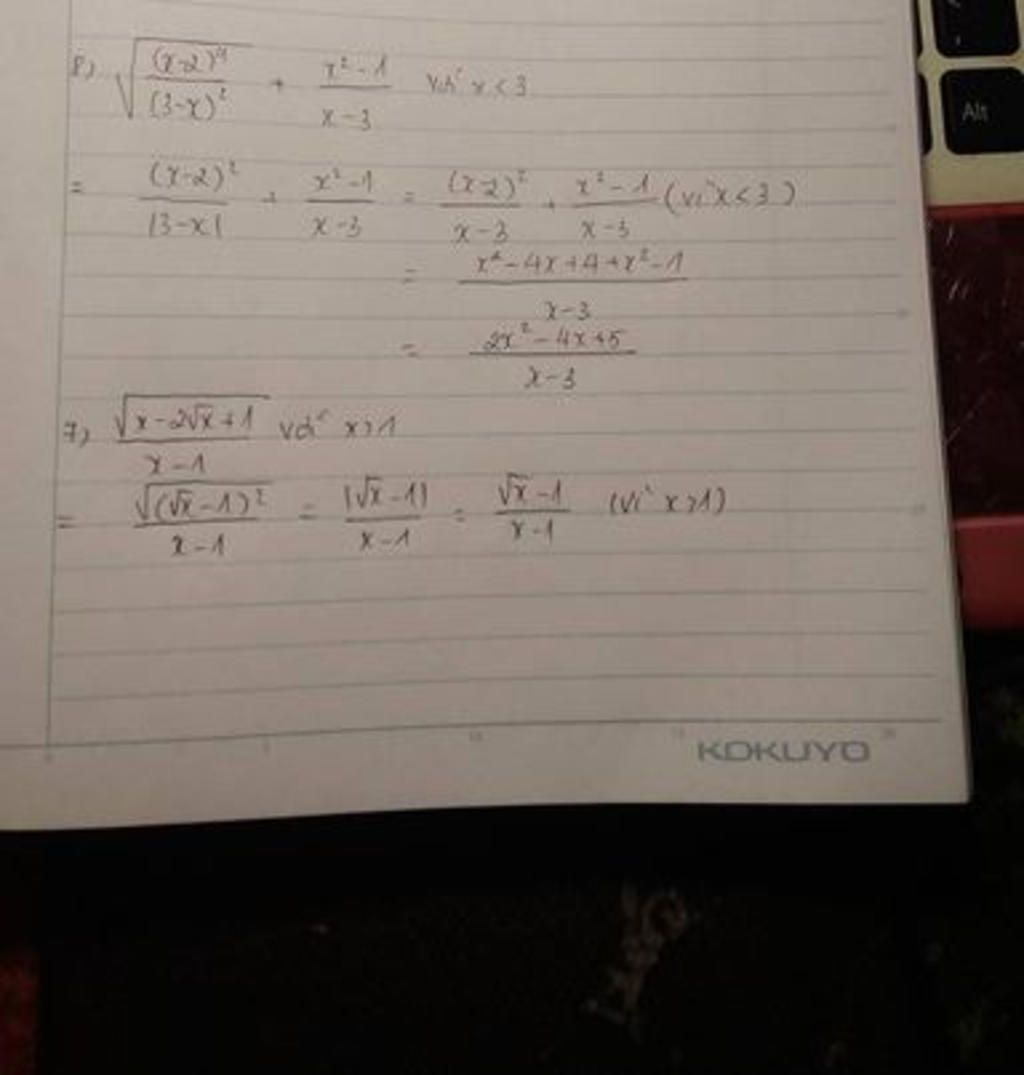 8) √((x-2)⁴/(3-x)²) + (x²-1)/(x-3) với x < 3
= (x-2)²/|3-x| + (x²-1)/(x-3) = (x-2)²/(x-3) + (x²-1)/(x-3) (vì x < 3)
= (x²-4x+4+x²-1)/(x-3)
= (2x²-4x+5)/(x-3)
7) √(x-2√x+1)/(x-1) với x>1
= √((√x-1)²)/(x-1) = |√x-1|/(x-1) = (√x-1)/(x-1) (vì x>1)
KOKUYO
Alt